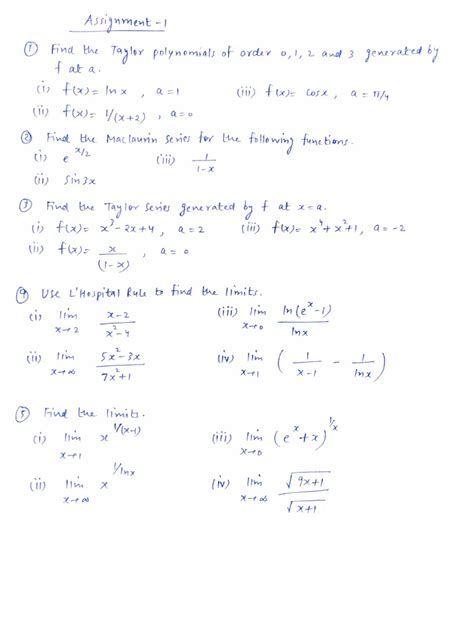 Assignment-1
① Find the Taylor polynomials of order 0,1,2 and 3 generated by
f at a.
(i) f(x)= lnx , a=1 (iii) f(x)= cosx, a=π/4
(ii) f(x)= 1/(x+2) , a=0
② Find the Maclaurin Series for the following functions.
(i) e^(x/2) (iii) 1/(1-x)
(ii) Sin3x
③ Find the Taylor Series generated by f at x=a.
(i) f(x)= x³-2x+4, a=2 (iii) f(x)= x⁴+x²+1, a=-2
(ii) f(x)= x/(1-x) , a=0
④ Use L'Hospital Rule to find the limits.
(i) lim x→2 (x-2)/(x²-4) (iii) lim x→0 ln(eˣ-1)/lnx
(ii) lim x→∞ (5x²-3x)/(7x²+1) (iv) lim x→1 (1/(x-1) - 1/lnx)
⑤ Find the limits.
(i) lim x→1 x^(1/(x-1)) (iii) lim x→0 (eˣ+x)^(1/x)
(ii) lim x→∞ x^(1/lnx) (iv) lim x→∞ √(9x+1)/√(x+1)